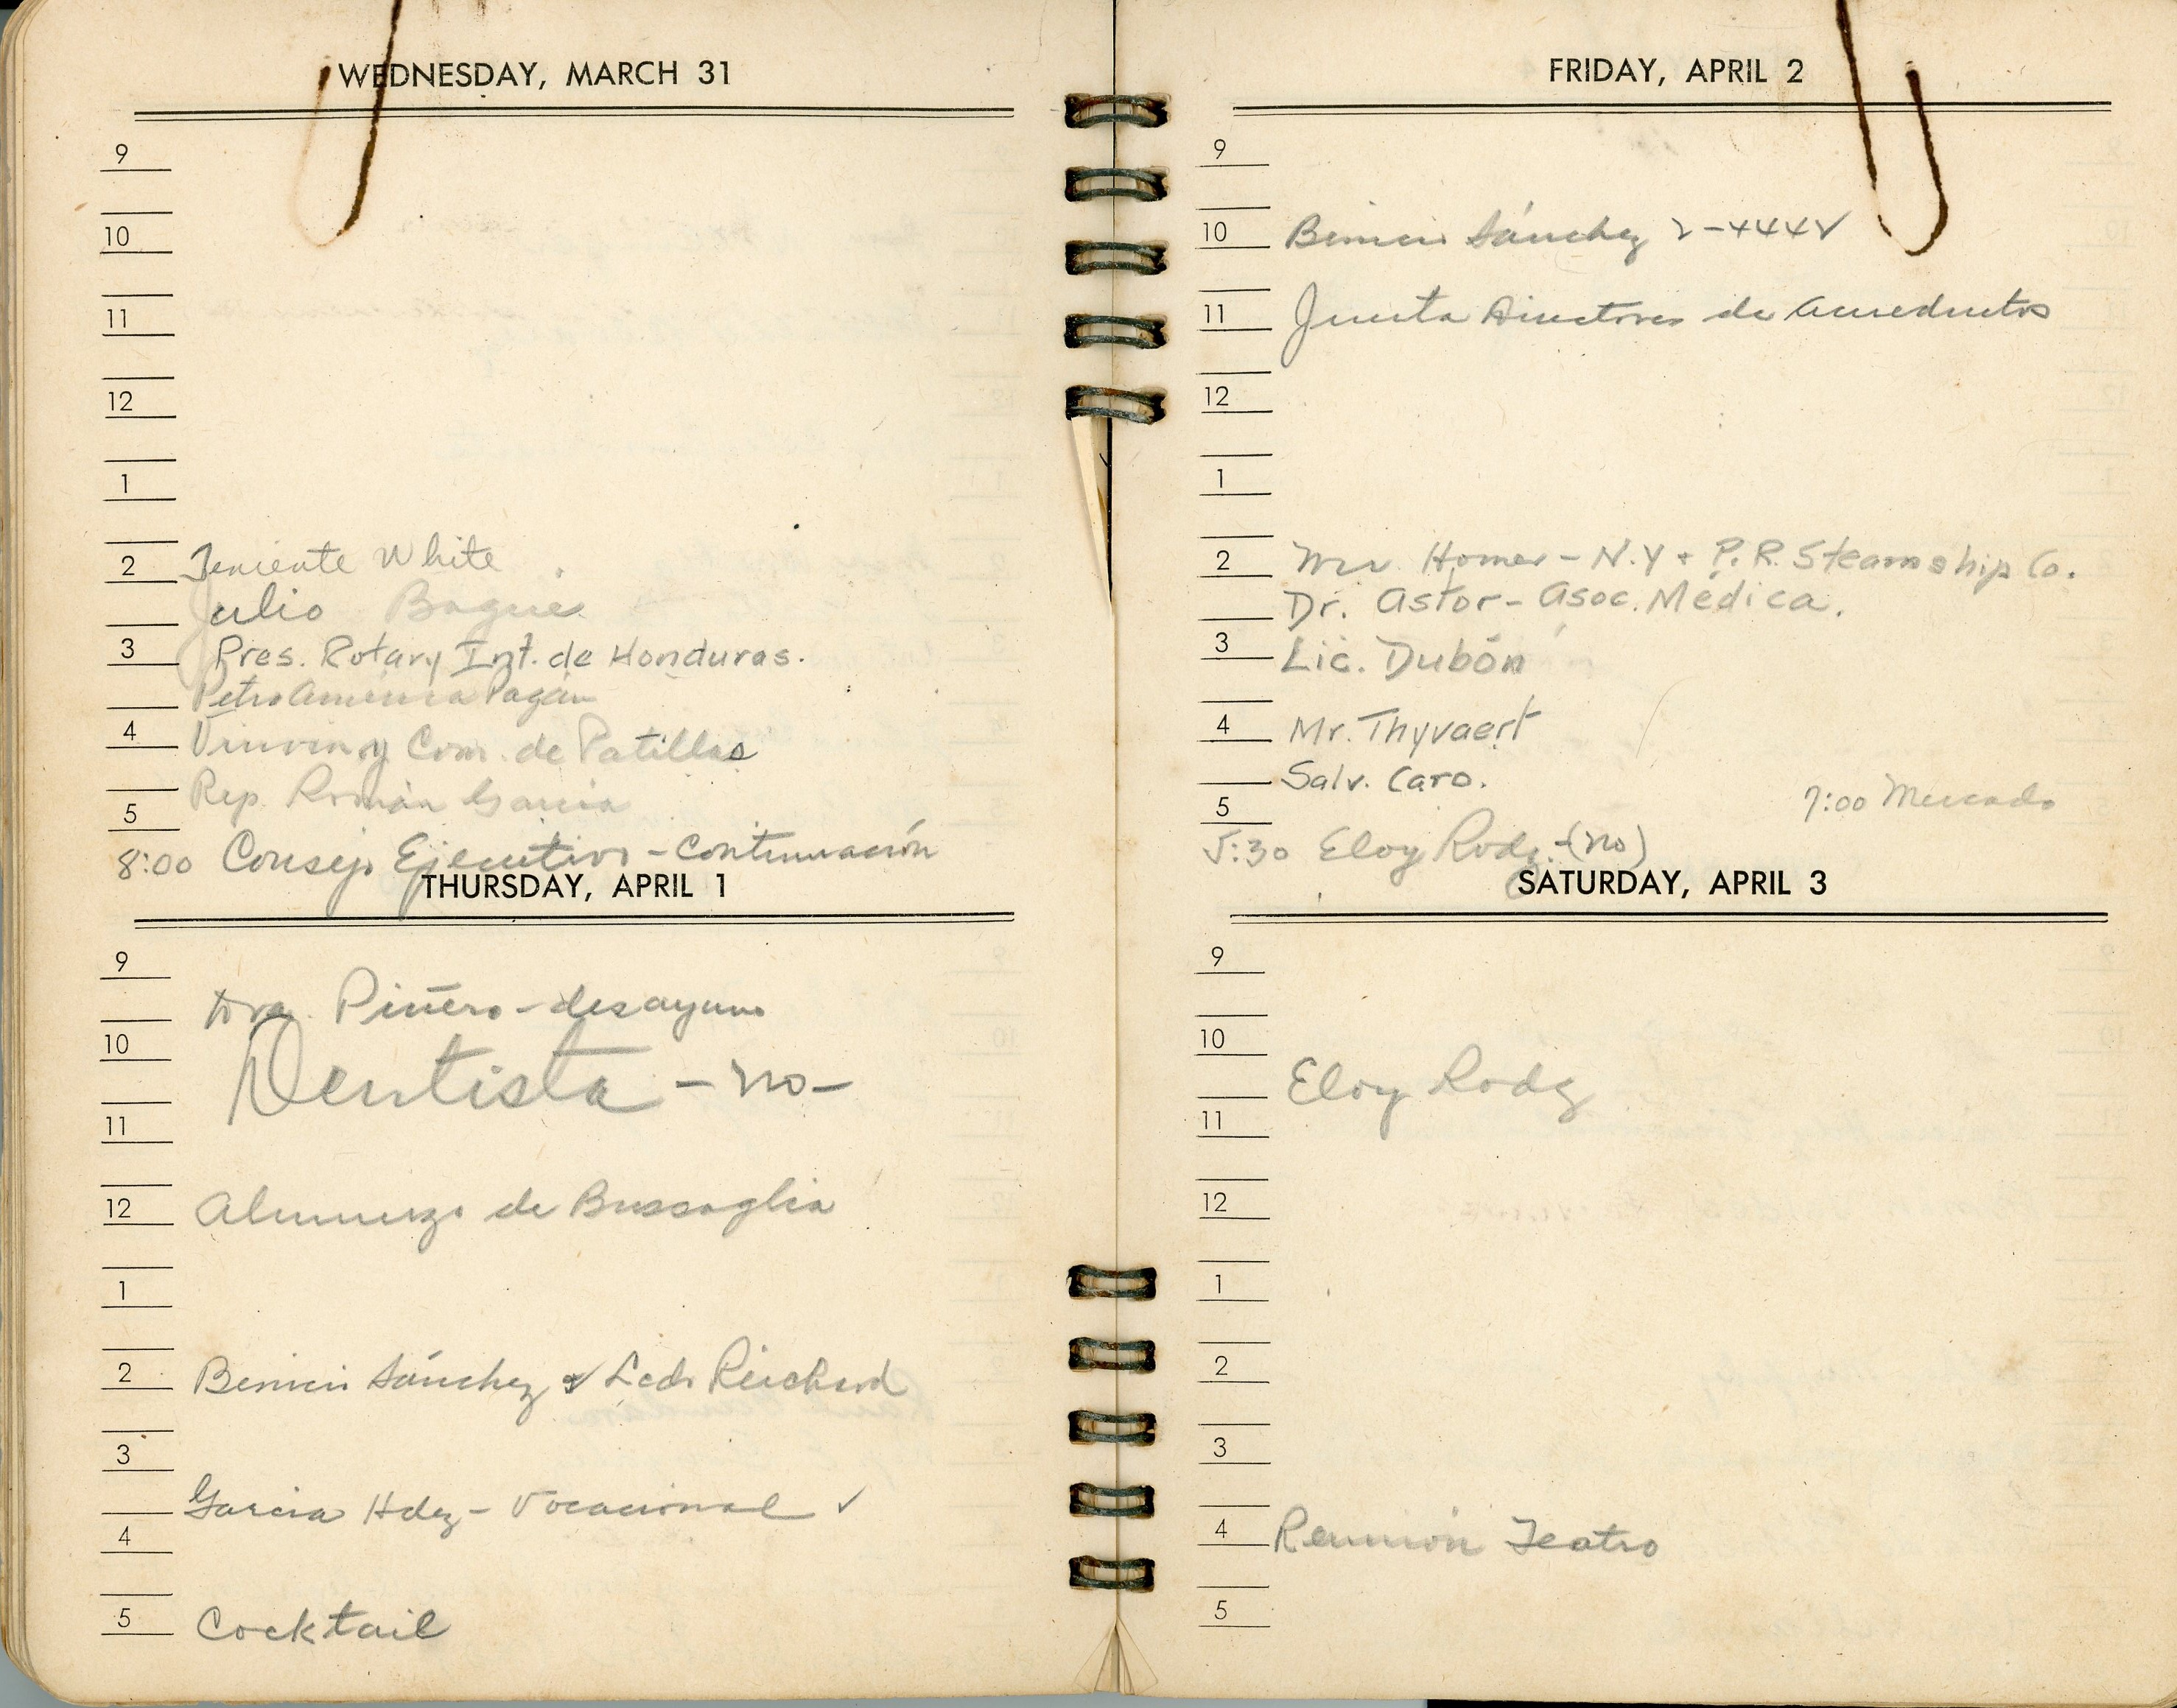 WEDNESDAY, MARCH 31
9
10
11
12
1
2 Teniente White
Julio Bagué
3 Pres. Rotary Int. de Honduras.
Petro América Pagán
4 y Com. de Patillas
Rep. Román García
5
8:00 Consejo Ejecutivo - Continuación
THURSDAY, APRIL 1
9
Dra. Piñero - desayuno
10
Dentista - no -
11
12 Almuerzo de Bussaglia
1
2 Sánchez Reichard
3
García Hdez - Vocacional ✓
4
5 Cocktail
FRIDAY, APRIL 2
9
10 Sánchez 2-4442
11 Junta Directores de Acueductos
12
1
2 Mr Homer - N.Y + P.R. Steamship Co.
Dr. Astor - Asoc. Médica.
3 Lic. Dubón
4 Mr. Thyvaert
Salv. Caro.
5 7:00 Mercado
5:30 Eloy Rodg. - (no)
SATURDAY, APRIL 3
9
10
Eloy Rodg
11
12
1
2
3
4 Reunión Teatro
5